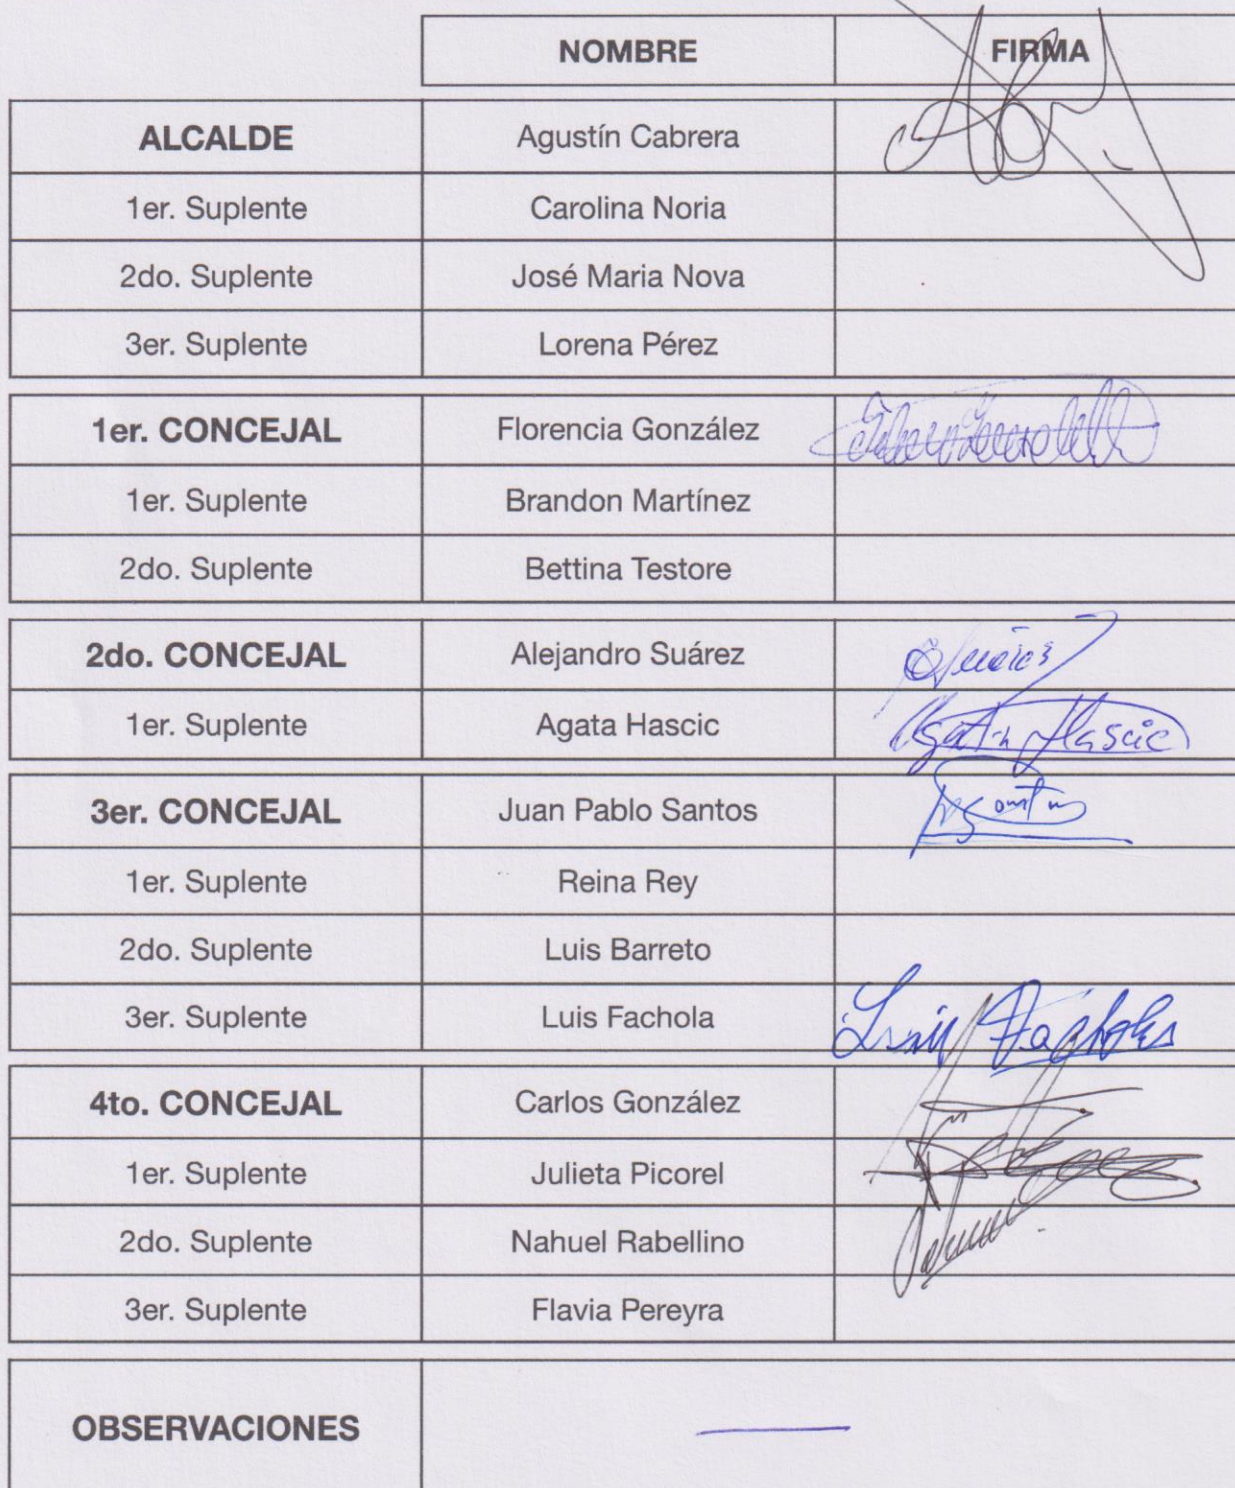 NOMBRE FIRMA
ALCALDE Agustín Cabrera
1er. Suplente Carolina Noria
2do. Suplente José Maria Nova
3er. Suplente Lorena Pérez
1er. CONCEJAL Florencia González
1er. Suplente Brandon Martínez
2do. Suplente Bettina Testore
2do. CONCEJAL Alejandro Suárez
1er. Suplente Agata Hascic Agata Hascic
3er. CONCEJAL Juan Pablo Santos
1er. Suplente Reina Rey
2do. Suplente Luis Barreto
3er. Suplente Luis Fachola Luis Fachola
4to. CONCEJAL Carlos González
1er. Suplente Julieta Picorel
2do. Suplente Nahuel Rabellino
3er. Suplente Flavia Pereyra
OBSERVACIONES